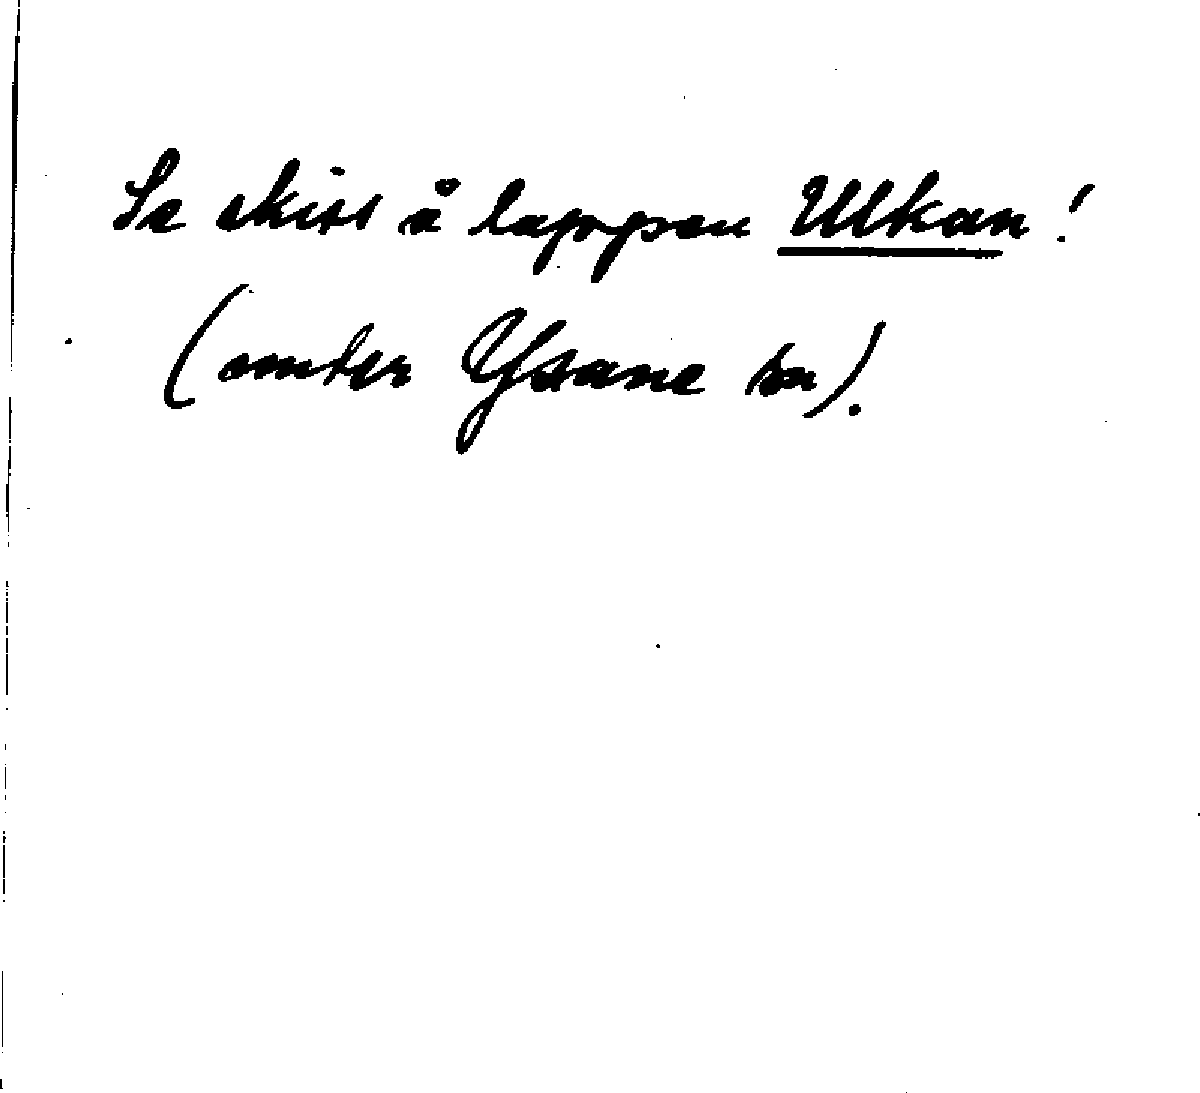 Se skiss å lappen Ulkan!
(under Ysane sn).